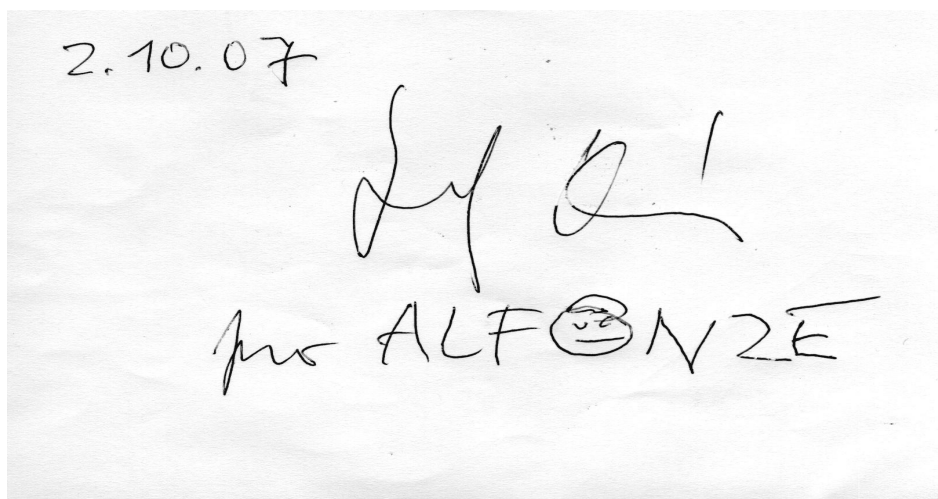 2.10.07
pro ALFONZE